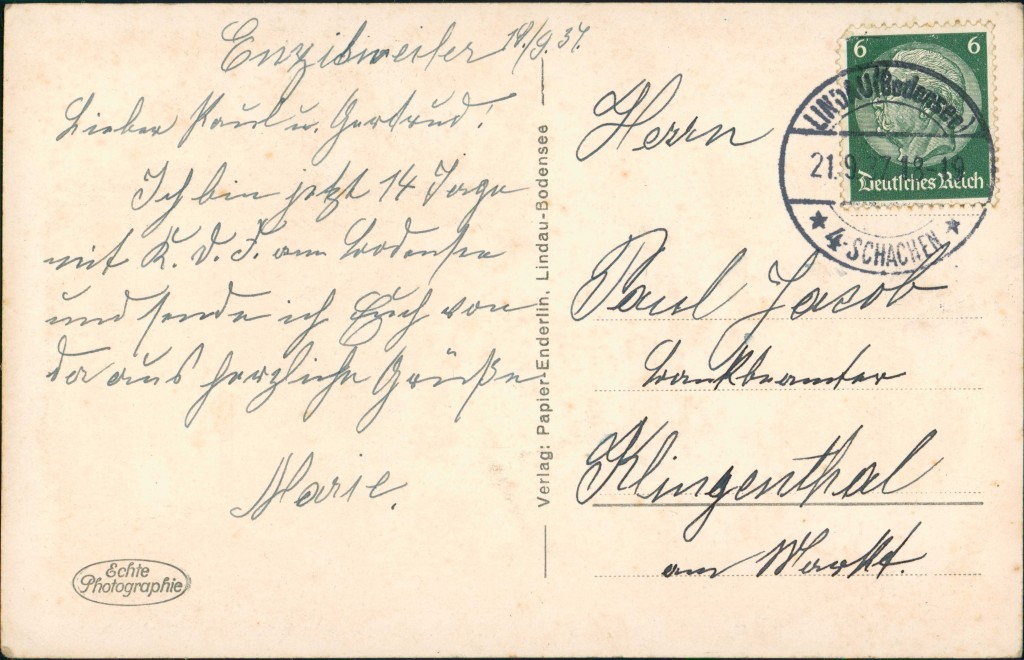 Enzisweiler 19/9.37.
Lieber Paul u. Gertrud!
Ich bin jetzt 14 Tage
mit K. d. F. am Bodensee
und sende ich Euch von
da aus herzliche Grüße
Marie.
Echte
Photographie
Verlag: Papier-Enderlin, Lindau-Bodensee
6 6
Deutsches Reich
LINDAU (Bodensee)
21.9.37.18-19
★ 4-SCHACHEN ★
Herrn
Paul Jacob
Bankbeamter
Klingenthal
am Markt.